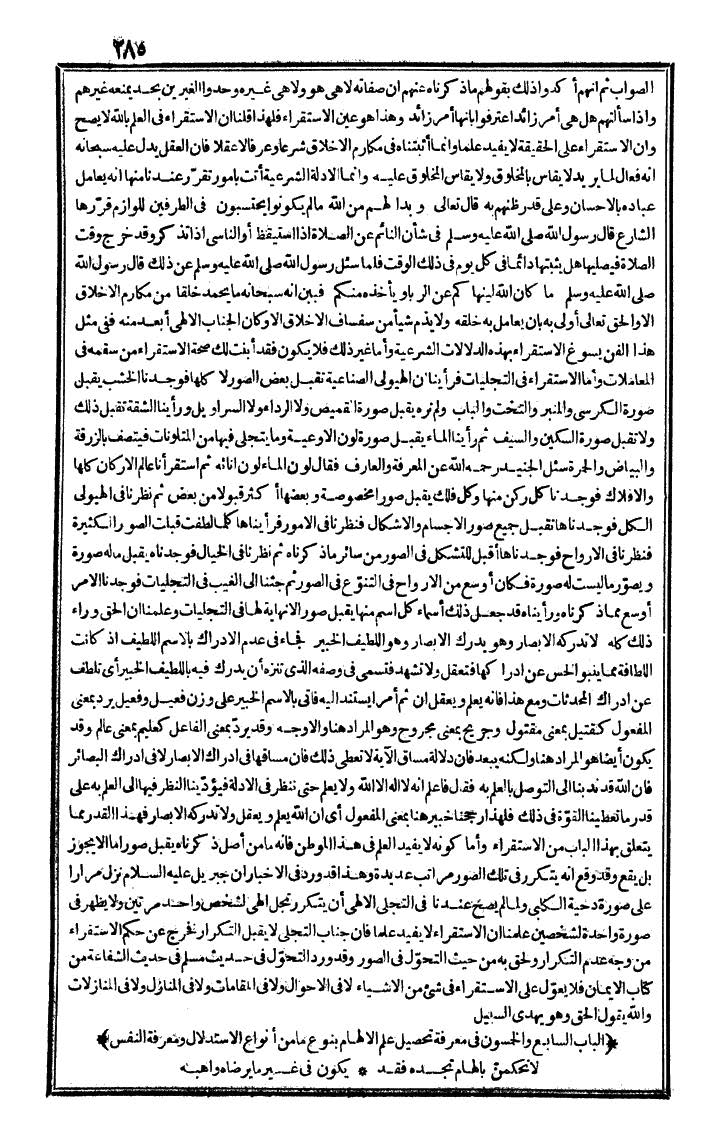 ٢٨٥
الصواب ثم انهم أكدوا ذلك بقولهم ماذكرناه عنهم ان صفاته لاهى هو ولاهى غيره وحدوا الغيرين بحد يمنعه غيرهم
واذا سألتهم هل هى أمر زائد اعترفوا بانها أمر زائد وهذا هو عين الاستقراء فلهذا قلنا ان الاستقراء فى العلم بالله لا يصح
وان الاستقراء على الحقيقة لا يفيد علما وانما أثبتناه فى مكارم الاخلاق شرعا وعرفا لا عقلا فان العقل يدل عليه سبحانه
انه فعال لما يريد لا يقاس بالمخلوق ولا يقاس المخلوق عليه وانما الادلة الشرعية أتت بامور تقرّر عندنا منها انه يعامل
عباده بالاحسان وعلى قدر ظنهم به قال تعالى وبدا لهم من الله مالم يكونوا يحتسبون فى الطرفين للوازم قررها
الشارع قال رسول الله صلى الله عليه وسلم فى شأن النائم عن الصلاة اذا استيقظ أو الناسى اذا تذكر وقد خرج وقت
الصلاة فيصليها هل يثبتها دائما فى كل يوم فى ذلك الوقت فلما سئل رسول الله صلى الله عليه وسلم عن ذلك قال رسول الله
صلى الله عليه وسلم ما كان الله لينها كم عن الربا ويأخذه منكم فبين انه سبحانه ما يحمد خلقا من مكارم الاخلاق
الاوالحق تعالى أولى به بان يعامل به خلقه ولا يذم شيأ من سفساف الاخلاق الاوكان الجناب الالهى أبعد منه فنى مثل
هذا الفن يسوغ الاستقراء بهذه الدلالات الشرعية وأما غير ذلك فلا يكون فقد أبنت لك صحة الاستقراء من سقمه فى
المعاملات وأما الاستقراء فى التجليات فرأينا ان الهيولى الصناعية تقبل بعض الصور لا كلها فوجدنا الخشب يقبل
صورة الكرسى والمنبر والتخت والباب ولم نره يقبل صورة القميص ولا الرداء ولا السراويل ورأينا الشقة تقبل ذلك
ولا تقبل صورة السكين والسيف ثم رأينا الماء يقبل صورة لون الاوعية وما يتجلى فيها من المتلونات فيتصف بالزرقة
والبياض والحرة سئل الجنيد رحمه الله عن المعرفة والعارف فقال لون الماء لون انائه ثم استقرأنا عالم الاركان كلها
والافلاك فوجدنا كل ركن منها وكل فلك يقبل صورا مخصوصة وبعضها أكثر قبولا من بعض ثم نظرنا فى الهيولى
الكل فوجدناها تقبل جميع صور الاجسام والاشكال فنظرنا فى الامور فرأيناها كلما لطفت قبلت الصور الكثيرة
فنظرنا فى الارواح فوجدناها أقبل للتشكل فى الصور من سائر ماذكرناه ثم نظرنا فى الخيال فوجدناه يقبل ماله صورة
ويصوّر ماليست له صورة فكان أوسع من الارواح فى التنوّع فى الصور ثم جئنا الى الغيب فى التجليات فوجدنا الامر
أوسع مما ذكرناه ورأيناه قد جعل ذلك أسماء كل اسم منها يقبل صورا لانهاية لها فى التجليات وعلمنا ان الحق وراء
ذلك كله لاتدركه الابصار وهو يدرك الابصار وهو اللطيف الخبير فجاء فى عدم الادراك بالاسم اللطيف اذ كانت
اللطافة مما ينبو الحس عن ادراكها فتعقل ولا تشهد فتسمى فى وصفه الذى تنزه أن يدرك فيه باللطيف الخبير أى تلطف
عن ادراك المحدثات ومع هذا فانه يعلم ويعقل ان ثم أمرا يستند اليه فاتى بالاسم الخبير على وزن فعيل وفعيل يرد بمعنى
المفعول كقتيل بمعنى مقتول وجريح بمعنى مجروح وهو المراد هنا والاوجه وقد يردّ بمعنى الفاعل كعليم بمعنى عالم وقد
يكون أيضا هو المراد هنا ولكنه يبعد فان دلالة مساق الآية لا تعطى ذلك فان مساقها فى ادراك الابصار لا فى ادراك البصائر
فان الله قد ندبنا الى التوصل بالعلم به فقال فاعلم انه لا اله الا الله ولا يعلم حتى ننظر فى الادلة فيؤدّينا النظر فيها الى العلم به على
قدر ما تعطينا القوّة فى ذلك فلهذا رجحنا خبير هنا بمعنى المفعول أى ان الله يعلم ويعقل ولا تدركه الابصار فهذا القدر مما
يتعلق بهذا الباب من الاستقراء وأما كونه لا يفيد العلم فى هذا الموطن فانه مامن أصل ذكرناه يقبل صورا ما الا يجوز
بل يقع وقد وقع انه يتكرر فى تلك الصور مراتب عديدة وهذا قد ورد فى الاخبار ان جبريل عليه السلام نزل مرارا
على صورة دحية الكلبى ولما لم يصح عندنا فى التجلى الالهى أن يتكرر تجل الهى لشخص واحد مرتين ولا يظهر فى
صورة واحدة لشخصين علمنا ان الاستقراء لا يفيد علما فان جناب التجلى لا يقبل التكرار فخرج عن حكم الاستقراء
من وجه عدم التكرار ولحق به من حيث التحوّل فى الصور وقد ورد التحوّل فى حديث مسلم فى حديث الشفاعة من
كتاب الايمان فلا يعوّل على الاستقراء فى شئ من الاشياء لا فى الاحوال ولا فى المقامات ولا فى المنازل ولا فى المنازلات
والله يقول الحق وهو يهدى السبيل
﴿الباب السابع والخسون فى معرفة تحصيل علم الالهام بنوع ما من أنواع الاستدلال ومعرفة النفس﴾
لا تحكمنّ بالهام تجده فقد * يكون فى غير ما يرضاه واهبه